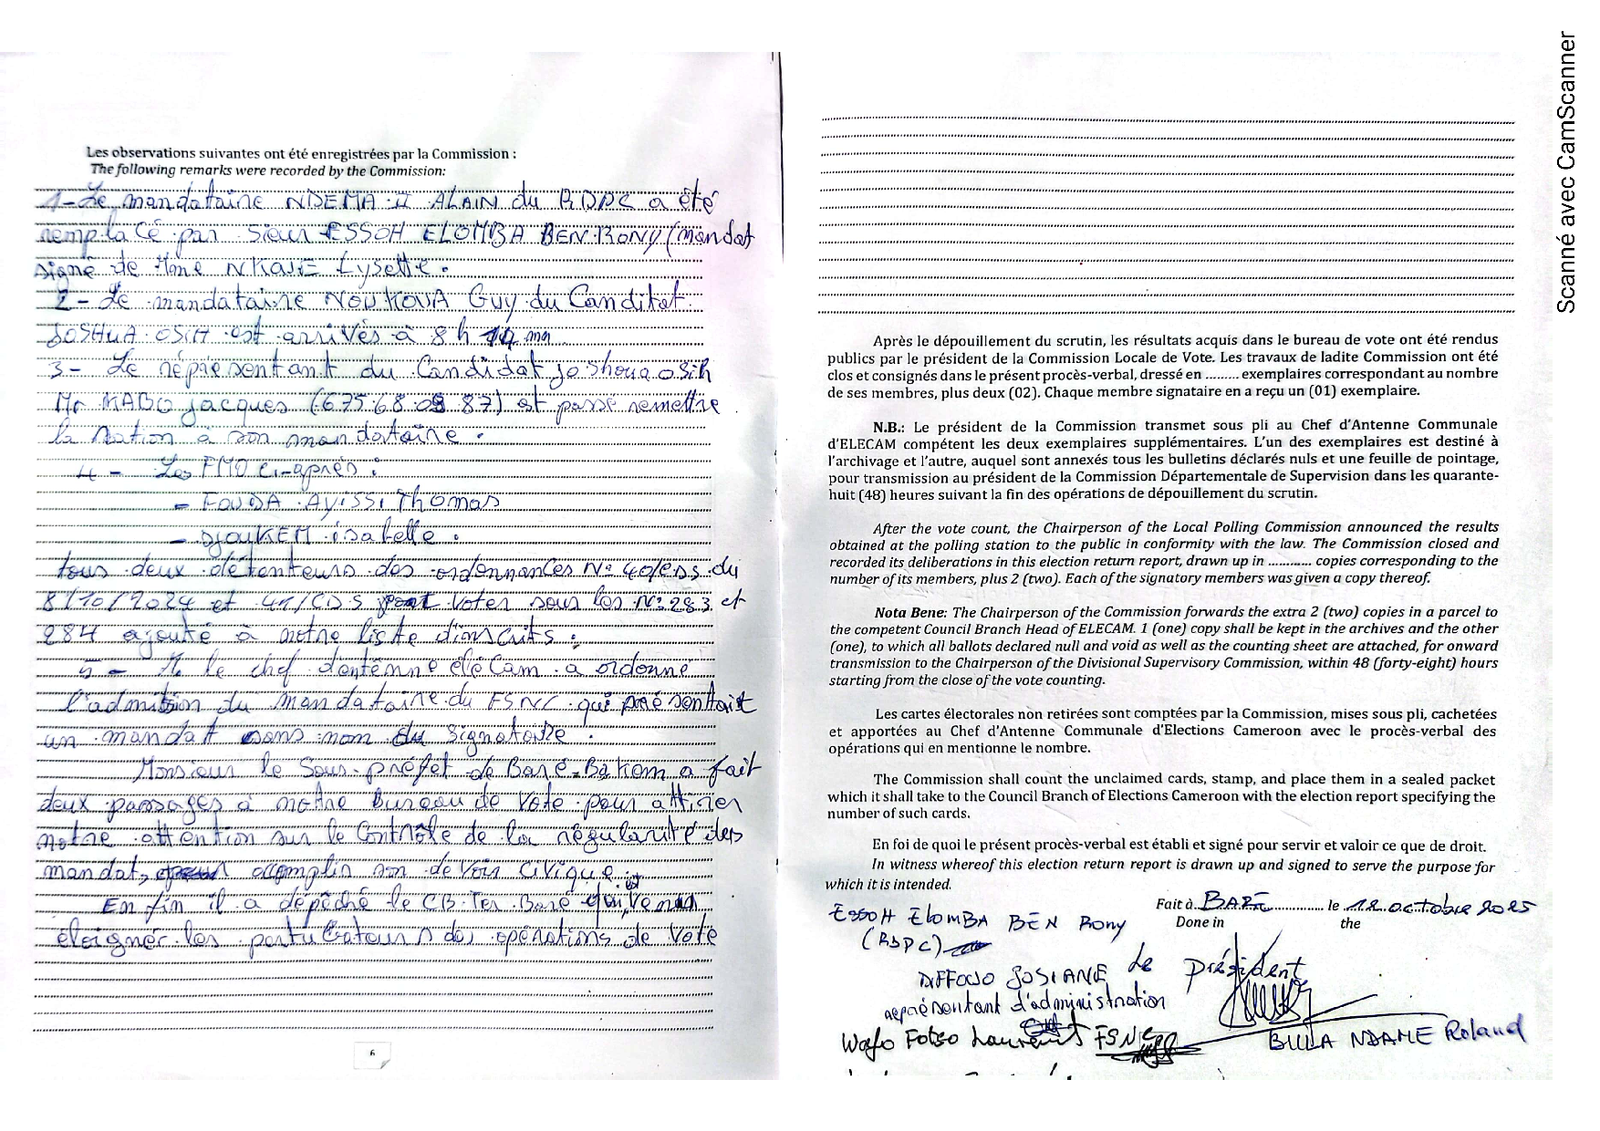 Les observations suivantes ont été enregistrées par la Commission :
The following remarks were recorded by the Commission:
1- Le mandataire NDEMA II ALAIN du RDPC a été
remplacé par Sieur ESSOH ELOMBA BEN RONY (mandat
signé de Mme NKAJE Lysette.
2 - Le mandataire NOUKOUA Guy du Canditat
JOSHUA OSIH est arrivés à 8 h mn
3 - Le répresentant du Candidat Joshoua OSIH
Mr KABO Jacques (675 68 08 87) est passé remettre
la Ration à son mandataire.
4 - Les FMO ci-après :
- FOUDA AYISSI Thomas
- DJOUKEM isabelle.
tous deux détenteurs des ordonnances N° 40/CDS du
8/10/2024 et 41/CDS pour voter sous les N° 283 et
284 ajouté à notre liste d'inscrits.
5 - M le chef d'antenne élécam a ordonné
l'admission du mandataire du FSNC qui présentait
un mandat sans nom du Signataire.
Monsieur le Sous-préfet de Baré-Bakem a fait
deux passages à notre Bureau de Vote pour attirer
notre attention sur le Contrôle de la régularité des
mandats, accomplir son devoir Civique.
En fin il a dépêché le CB Ter Baré qui est venu
éloigner les pertubateurs des opérations de vote
6
Après le dépouillement du scrutin, les résultats acquis dans le bureau de vote ont été rendus
publics par le président de la Commission Locale de Vote. Les travaux de ladite Commission ont été
clos et consignés dans le présent procès-verbal, dressé en ......... exemplaires correspondant au nombre
de ses membres, plus deux (02). Chaque membre signataire en a reçu un (01) exemplaire.
N.B.: Le président de la Commission transmet sous pli au Chef d'Antenne Communale
d'ELECAM compétent les deux exemplaires supplémentaires. L'un des exemplaires est destiné à
l'archivage et l'autre, auquel sont annexés tous les bulletins déclarés nuls et une feuille de pointage,
pour transmission au président de la Commission Départementale de Supervision dans les quarante-
huit (48) heures suivant la fin des opérations de dépouillement du scrutin.
After the vote count, the Chairperson of the Local Polling Commission announced the results
obtained at the polling station to the public in conformity with the law. The Commission closed and
recorded its deliberations in this election return report, drawn up in ............ copies corresponding to the
number of its members, plus 2 (two). Each of the signatory members was given a copy thereof.
Nota Bene: The Chairperson of the Commission forwards the extra 2 (two) copies in a parcel to
the competent Council Branch Head of ELECAM. 1 (one) copy shall be kept in the archives and the other
(one), to which all ballots declared null and void as well as the counting sheet are attached, for onward
transmission to the Chairperson of the Divisional Supervisory Commission, within 48 (forty-eight) hours
starting from the close of the vote counting.
Les cartes électorales non retirées sont comptées par la Commission, mises sous pli, cachetées
et apportées au Chef d'Antenne Communale d'Elections Cameroon avec le procès-verbal des
opérations qui en mentionne le nombre.
The Commission shall count the unclaimed cards, stamp, and place them in a sealed packet
which it shall take to the Council Branch of Elections Cameroon with the election report specifying the
number of such cards.
En foi de quoi le présent procès-verbal est établi et signé pour servir et valoir ce que de droit.
In witness whereof this election return report is drawn up and signed to serve the purpose for
which it is intended.
Fait à BARE le 12 octobre 2025
Done in the
ESSOH ELOMBA BEN Rony
(RDPC)
DIFFOUO JOSIANE
représentant d'administration
Le président
Wafo Fotso Laurent FSNC
BILLA NDAME Roland
Scanné avec CamScanner